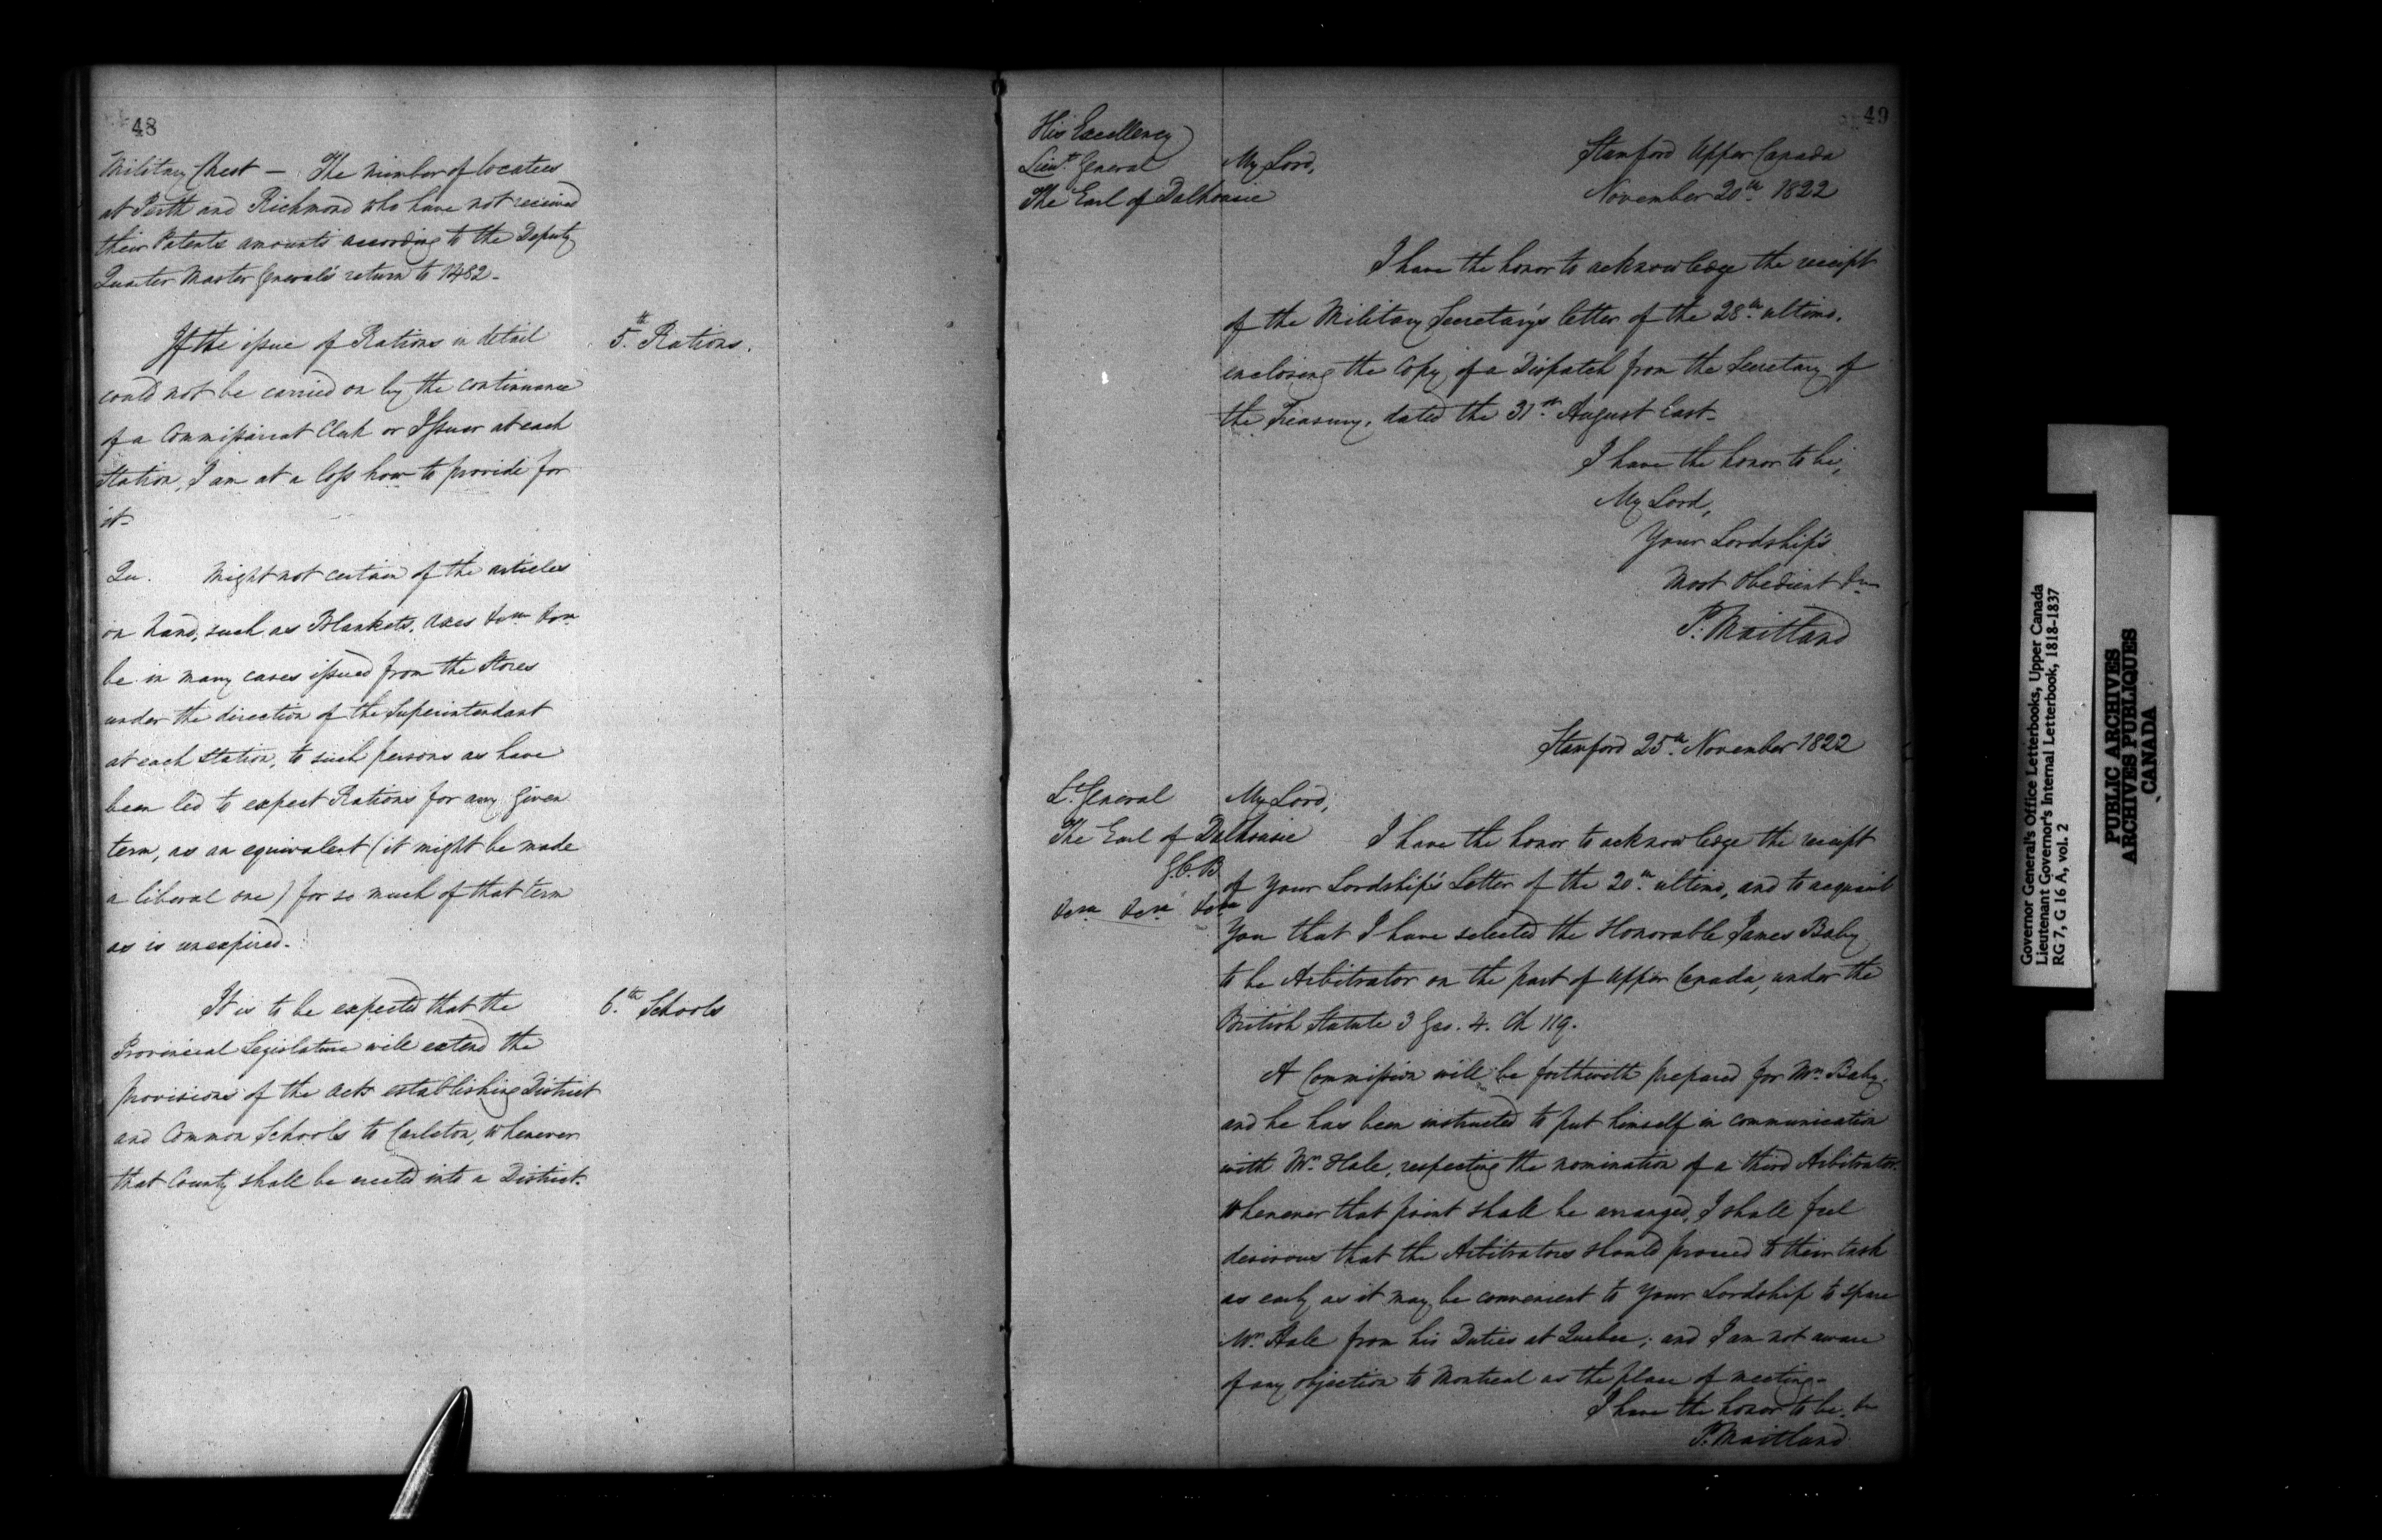 48
Military Chest — The number of locatees
at Perth and Richmond who have not received
their Patents amounts according to the Deputy
Quarter Master General's return to 1482-
If the issue of Rations in detail
5.th Rations.
could not be carried on by the continuance
of a Commissariat Clerk or Issuer at each
Station, I am at a loss how to provide for
it-
Qu. Might not certain of the articles
on hand, such as Blankets, Axes &ca &ca
be in many cases issued from the Stores
under the direction of the Superintendant
at each Station, to such persons as have
been led to expect Rations for any given
term, as an equivalent (it might be made
a liberal one) for so much of that term
as is unexpired-
It is to be expected that the
6.th Schools
Provincial Legislature will extend the
provisions of the acts establishing District
and Common Schools to Carleton, whenever
that County shall be erected into a District-
49
His Excellency
Lieut. General
The Earl of Dalhousie
Stamford Upper Canada
November 20th 1822
My Lord,
I have the honor to acknowledge the receipt
of the Military Secretary's letter of the 28th ultimo,
enclosing the Copy of a Dispatch from the Secretary of
the Treasury, dated the 31st August last-
I have the honor to be,
My Lord,
Your Lordship's
Most Obedient &ca
P. Maitland
Stamford 25th November 1822
Lt. General
The Earl of Dalhousie
G.C.B
&ca &ca &ca
My Lord,
I have the honor to acknowledge the receipt
of Your Lordship's Letter of the 20th ultimo, and to acquaint
You that I have selected the Honorable James Baby
to be Arbitrator on the part of Upper Canada, under the
British Statute 3 Geo. 4. Ch 119.
A Commission will be forthwith prepared for Mr. Baby,
and he has been instructed to put himself in communication
with Mr. Hale, respecting the nomination of a third Arbitrator.
Whenever that point shall be arranged, I shall feel
desirous that the Arbitrators should proceed to their task
as early as it may be convenient to Your Lordship to spare
Mr. Hale from his Duties at Quebec; and I am not aware
of any objection to Montreal as the place of meeting-
I have the honor to be, &c
P. Maitland
Governor General's Office Letterbooks, Upper Canada
Lieutenant Governor's Internal Letterbook, 1818-1837
RG 7, G 16 A, vol. 2
PUBLIC ARCHIVES
ARCHIVES PUBLIQUES
CANADA